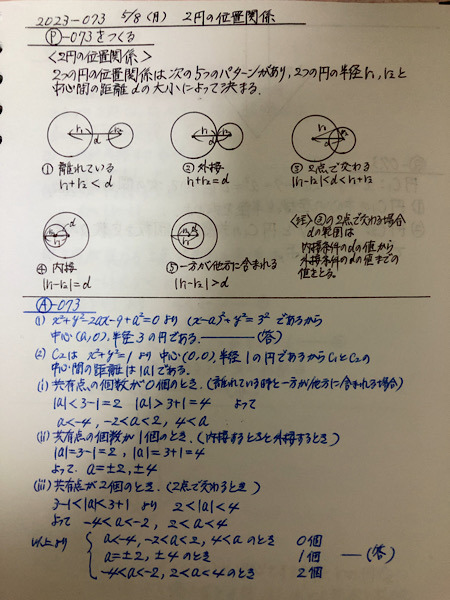 2023-073 5/8(月) 2円の位置関係
Ⓟ-073をつくる
<2円の位置関係>
2つの円の位置関係は次の5つのパターンがあり,2つの円の半径r₁,r₂と
中心間の距離dの大小によって決まる.
r₁ r₂ d
r₁ r₂ d
r₁ r₂ d
① 離れている
r₁+r₂<d
② 外接
r₁+r₂=d
③ 2点で交わる
|r₁-r₂|<d<r₁+r₂
④ 内接
|r₁-r₂|=d
⑤ 一方が他方に含まれる
|r₁-r₂|>d
(注) ③の2点で交わる場合
dの範囲は
内接条件のdの値から
外接条件のdの値までの
値をとる。
Ⓐ-073
(1) x²+y²-2ax-9+a²=0 より (x-a)²+y²=3² であるから
中心(a,0),半径3の円である. (答)
(2) C₂は x²+y²=1より 中心(0,0),半径1の円であるからC₁とC₂の
中心間の距離は|a|である.
(i) 共有点の個数が0個のとき.(離れている時と一方が他方に含まれる場合)
|a|<3-1=2 |a|>3+1=4 よって
a<-4, -2<a<2, 4<a
(ii) 共有点の個数が1個のとき.(内接するときと外接するとき)
|a|=3-1=2, |a|=3+1=4
よって a=±2,±4
(iii) 共有点が2個のとき.(2点で交わるとき)
3-1<|a|<3+1 より 2<|a|<4
よって -4<a<-2, 2<a<4
以上より a<-4, -2<a<2, 4<a のとき 0個
a=±2, ±4 のとき 1個 (答)
-4<a<-2, 2<a<4 のとき 2個